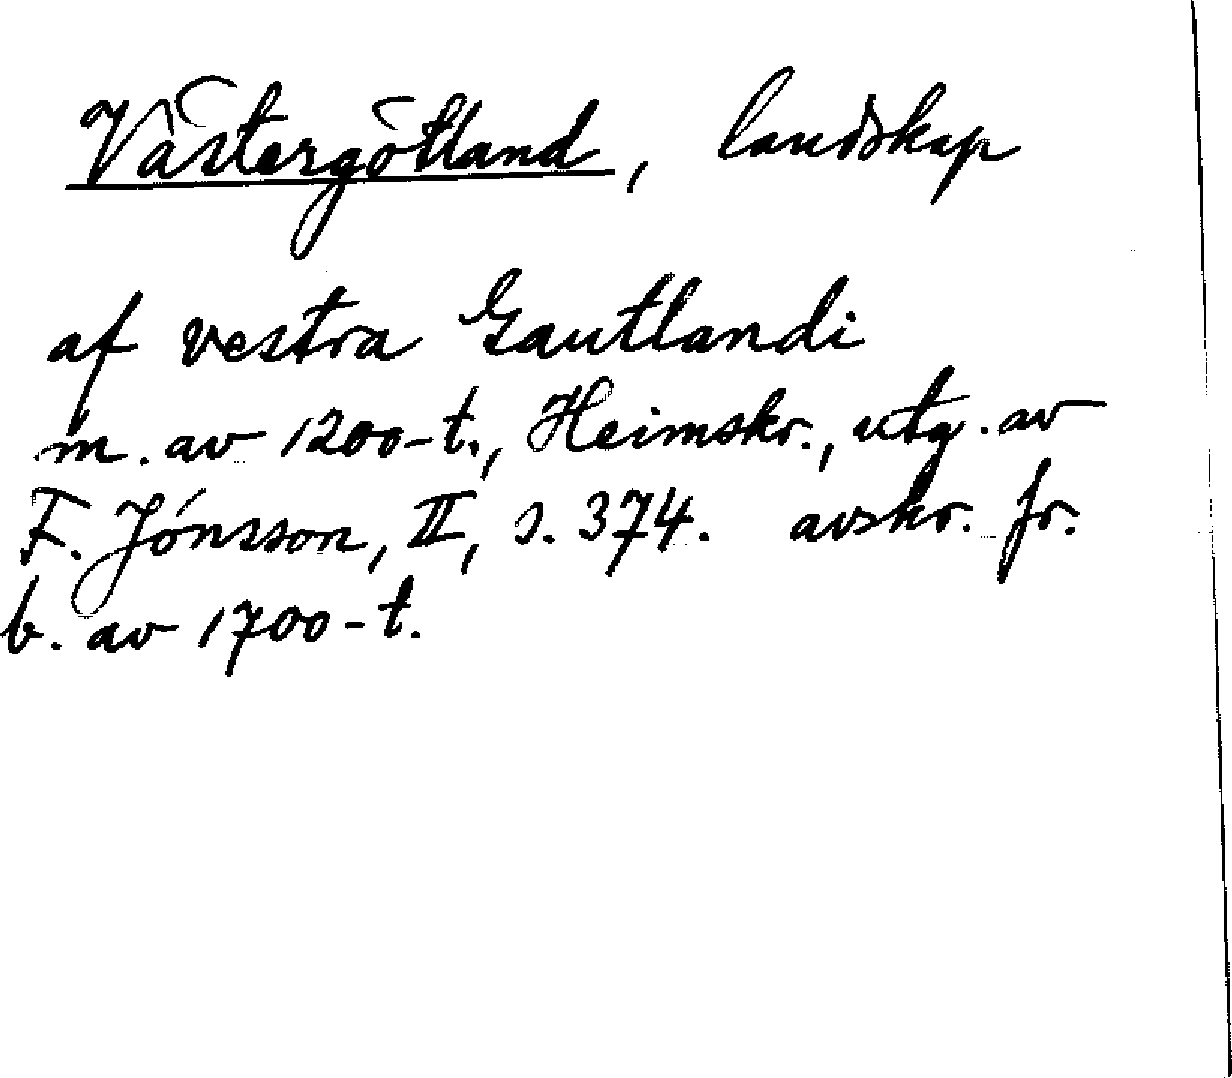 Västergötland, landskap
af vestra Gautlandi
m. av 1200-t., Heimskr., utg. av
F. Jónsson, II, s. 374. avskr. fr.
b. av 1700-t.